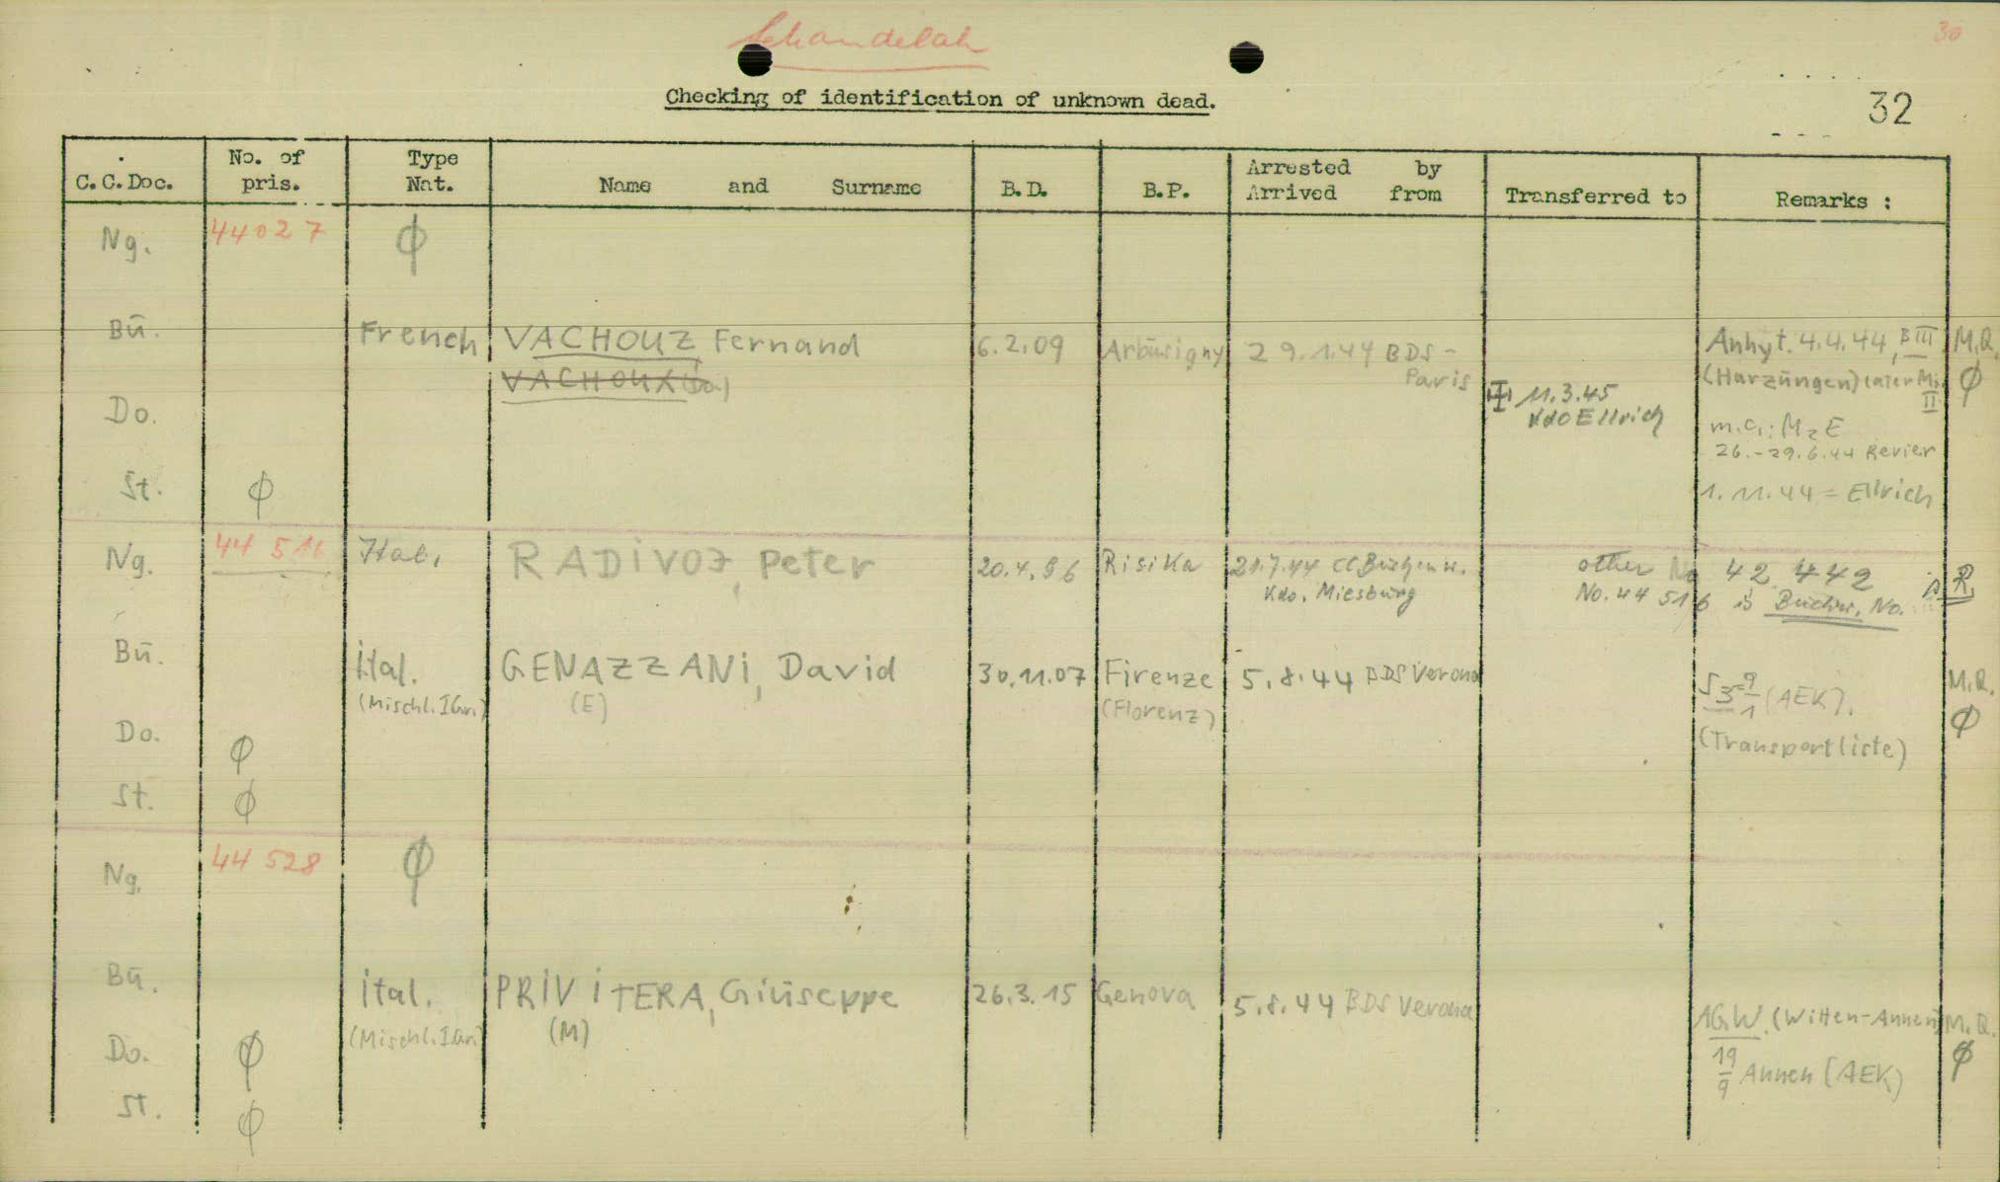 Schandelah
30
Checking of identification of unknown dead.
32
C.C.Doc. No. of pris. Type Nat. Name and Surname B.D. B.P. Arrested by Arrived from Transferred to Remarks :
Ng. 44027 φ
Bū. French VACHOUZ Fernand 6.2.09 Arbūsigny 29.1.44 BDS - Paris Anhyt. 4.4.44, B III M.R.
VACHOUX (Do.) (Harzūngen) later M. II φ
卐 11.3.45
Kdo Ellrich
Do. m.c.: M2E
26.-29.6.44 Revier
St. φ 1.11.44 = Ellrich
Ng. 44 516 Ital. RADIVOJ, Peter 20.4.96 Risika 21.7.44 CC Buchenw. other No 42 442 is R.
Kdo. Miesbūrg No. 44 516 is Buchw. No.
Bū. Ital. GENAZZANI, David 30.11.07 Firenze 5.8.44 BDS Verona M.R.
(Mischl. I Gr.) (E) (Florenz) S3 9/1 (AEK). φ
Do. φ (Transportliste)
St. φ
Ng. 44 528 φ
Bū. Ital. PRIVITERA, Giūseppe 26.3.15 Genova 5.8.44 BDS Verona AGW. (Witten-Annen) M.R.
(Mischl. I Gr.) (M)
Do. φ 19/9 Annen (AEK) φ
St. φ